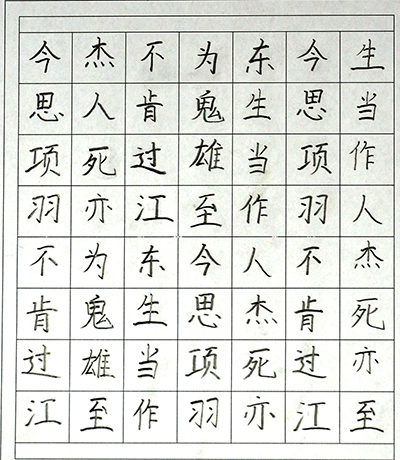 生当作人杰死亦至
今思项羽不肯过江
东生当作人杰死亦
为鬼雄至今思项羽
不肯过江东生当作
杰人死亦为鬼雄至
今思项羽不肯过江